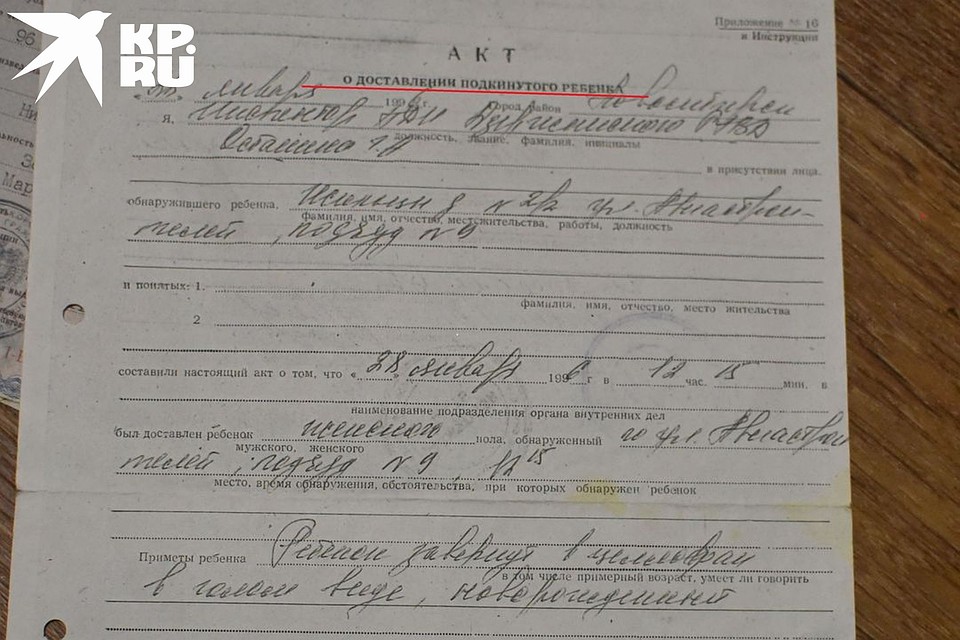 KP.
RU
96
Ни
За
Мар
Приложение № 16
к Инструкции
АКТ
О ДОСТАВЛЕНИИ ПОДКИНУТОГО РЕБЕНКА
января 1996 г. Город, район Новосибирск
я, инспектор Дзержинского РУВД
должность, звание, фамилия, инициалы
Осташко
в присутствии лица,
обнаружившего ребенка, ул. Авиастрои-
фамилия, имя, отчество, местожительства, работы, должность
телей, подъезд № 9
и понятых: 1.
фамилия, имя, отчество, место жительства
2
составили настоящий акт о том, что « 28 » января 1996 г в 12 час. 15 мин. в
наименование подразделения органа внутренних дел
был доставлен ребенок женского пола, обнаруженный по ул. Авиастрои
мужского, женского
телей, подъезд № 9, 12 15
место, время обнаружения, обстоятельства, при которых обнаружен ребенок
Приметы ребенка Ребенок завернут в целлофан
в том числе примерный возраст, умеет ли говорить
в голом виде, новорожденный